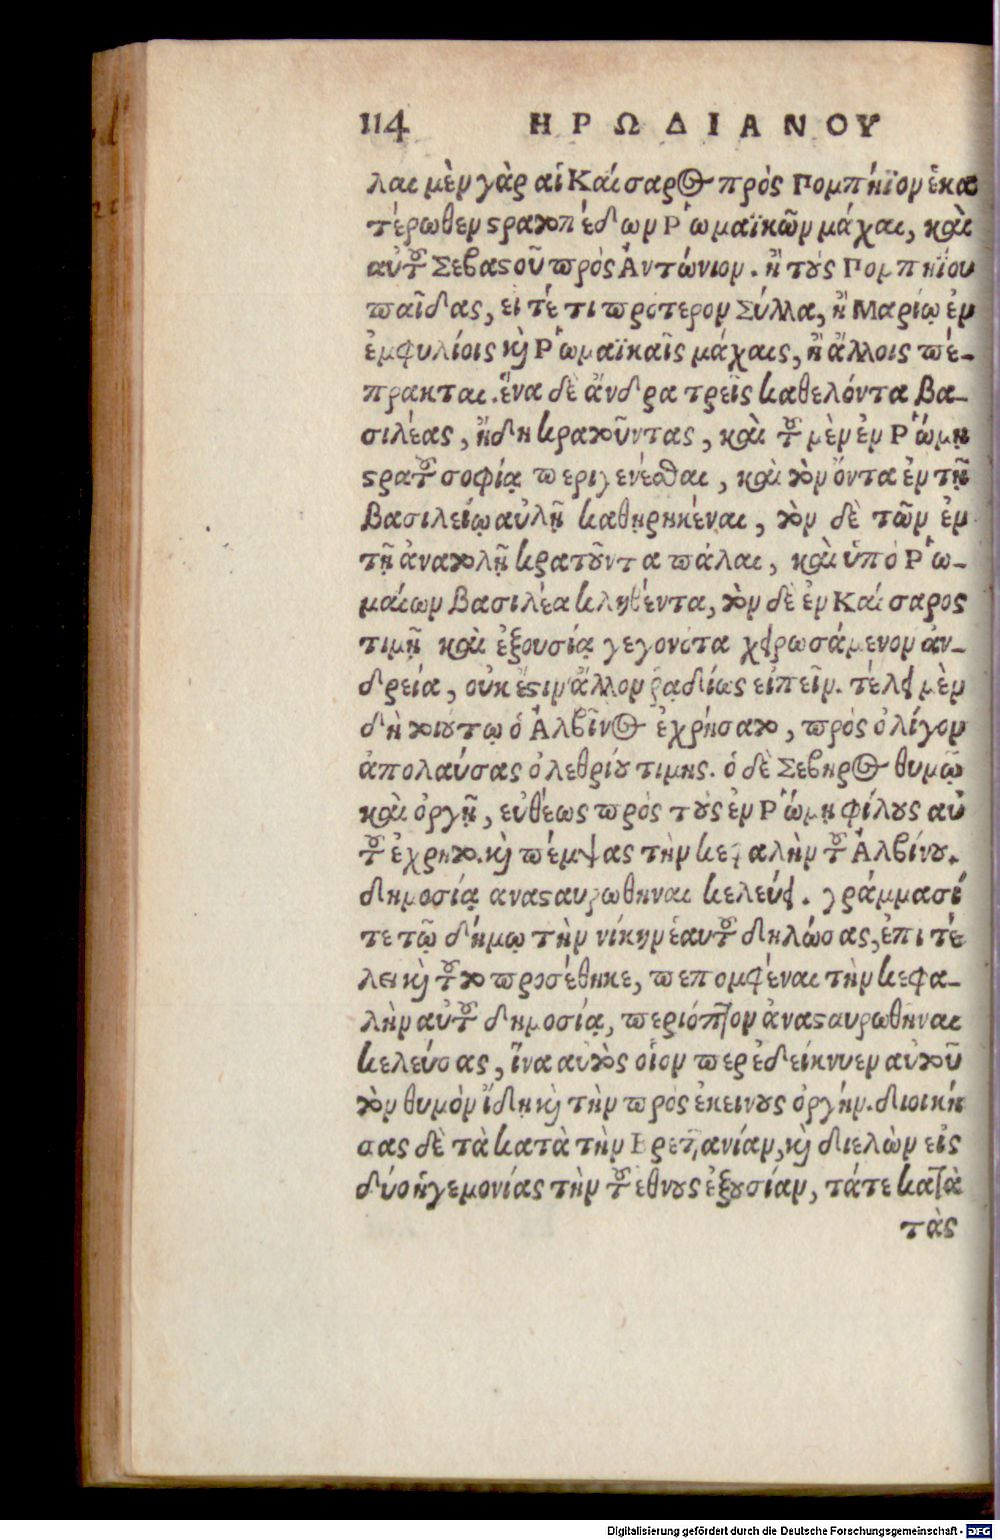 114 ΗΡΩΔΙΑΝΟΥ
λαι μὲν γὰρ αἱ Καίσαρος πρὸς Πομπήϊον ἑκα
τέρωθεν στρατοπέδων Ῥωμαϊκῶν μάχαι, καὶ
αὐτοῦ Σεβαστοῦ πρὸς Ἀντώνιον. ἢ τοὺς Πομπηΐου
παῖδας, εἰ τέ τι πρότερον Σύλλα, ἢ Μαρίῳ ἐν
ἐμφυλίοις καὶ Ῥωμαϊκαῖς μάχαις, ἢ ἄλλοις πέ-
πρακται. ἕνα δὲ ἄνδρα τρεῖς καθελόντα βα-
σιλέας, ἤδη κρατοῦντας, καὶ τοῦ μὲν ἐν Ῥώμῃ
στρατοῦ σοφίᾳ περιγενέσθαι, καὶ τὸν ὄντα ἐν τῇ
βασιλείῳ αὐλῇ καθῃρηκέναι, τὸν δὲ τῶν ἐν
τῇ ἀνατολῇ κρατοῦντα πάλαι, καὶ ὑπὸ Ῥω-
μαίων βασιλέα κληθέντα, τὸν δὲ ἐν Καίσαρος
τιμῇ καὶ ἐξουσίᾳ γεγονότα χειρωσάμενον ἀν-
δρείᾳ, οὐκ ἔστιν ἄλλον ῥᾳδίως εἰπεῖν. τέλει μὲν
δὴ τοιούτῳ ὁ Ἀλβῖνος ἐχρήσατο, πρὸς ὀλίγον
ἀπολαύσας ὀλεθρίου τιμης. ὁ δὲ Σεβηρος θυμῷ
καὶ ὀργῇ, εὐθέως πρὸς τοὺς ἐν Ῥώμῃ φίλους αὐ
τοῦ ἐχρητο. καὶ πέμψας τὴν κεφαλὴν τοῦ Ἀλβίνου.
δημοσίᾳ ανασταυρωθηναι κελεύει. γράμμασί
τε τῷ δήμῳ τὴν νίκην ἑαυτοῦ δηλώσας, ἐπι τέ
λει καὶ τοῦτο προσέθηκε, πεπομφέναι τὴν κεφα-
λὴν αὐτοῦ δημοσίᾳ, περιόπτον ἀνασταυρωθῆναι
κελεύσας, ἵνα αὐτὸς οἷον περ ἐδείκνυεν αὐτοῦ
τὸν θυμὸν ἴδῃ καὶ τὴν πρὸς ἐκεινους ὀργήν. διοική
σας δὲ τὰ κατὰ τὴν Βρεττανίαν, καὶ διελὼν εἰς
δύο ἡγεμονίας τὴν τοῦ ἔθνους ἐξουσίαν, τάτε κατὰ
τὰς
Digitalisierung gefördert durch die Deutsche Forschungsgemeinschaft - DFG